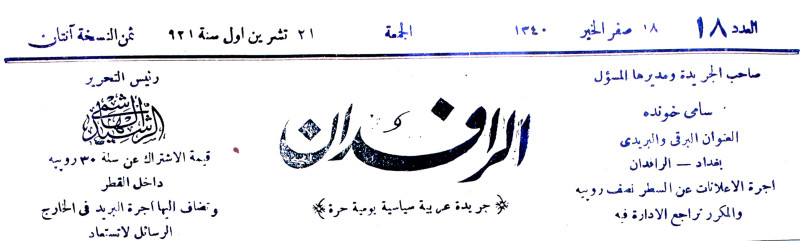 العدد ١٨ ١٨ صفر الخير ١٣٤٠ الجمعة ٢١ تشرين اول سنة ٩٢١ ثمن النسخة آنتان
صاحب الجريدة ومديرها المسؤل
سامى خونده
العنوان البرقى والبريدى
بغداد — الرافدان
اجرة الاعلانات عن السطر نصف روبيه
والمكرر تراجع الادارة فيه
الرافدان
جريدة عربية سياسية يومية حرة
رئيس التحرير
الرشيد الهاشمي
قيمة الاشتراك عن سنة ٣٠ روبيه
داخل القطر
وتضاف اليها اجرة البريد فى الخارج
الرسائل لاتستعاد